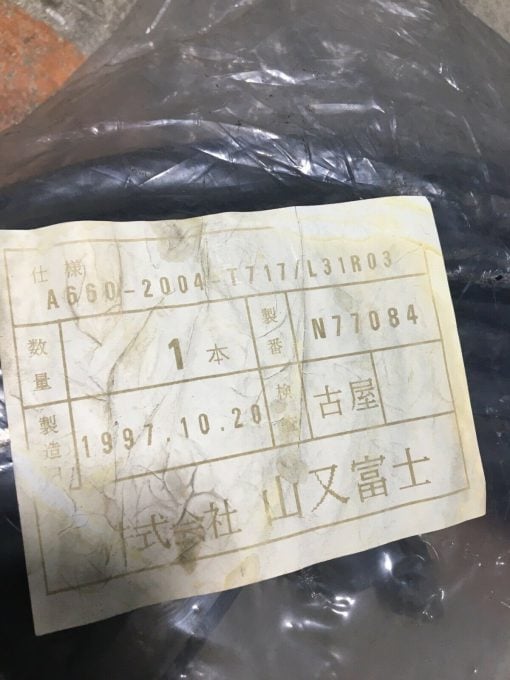 仕様
A660-2004-T717/L31R03
数量 1本 製番 N77084
製造 1997.10.20 検 古屋
式会社 山又富士